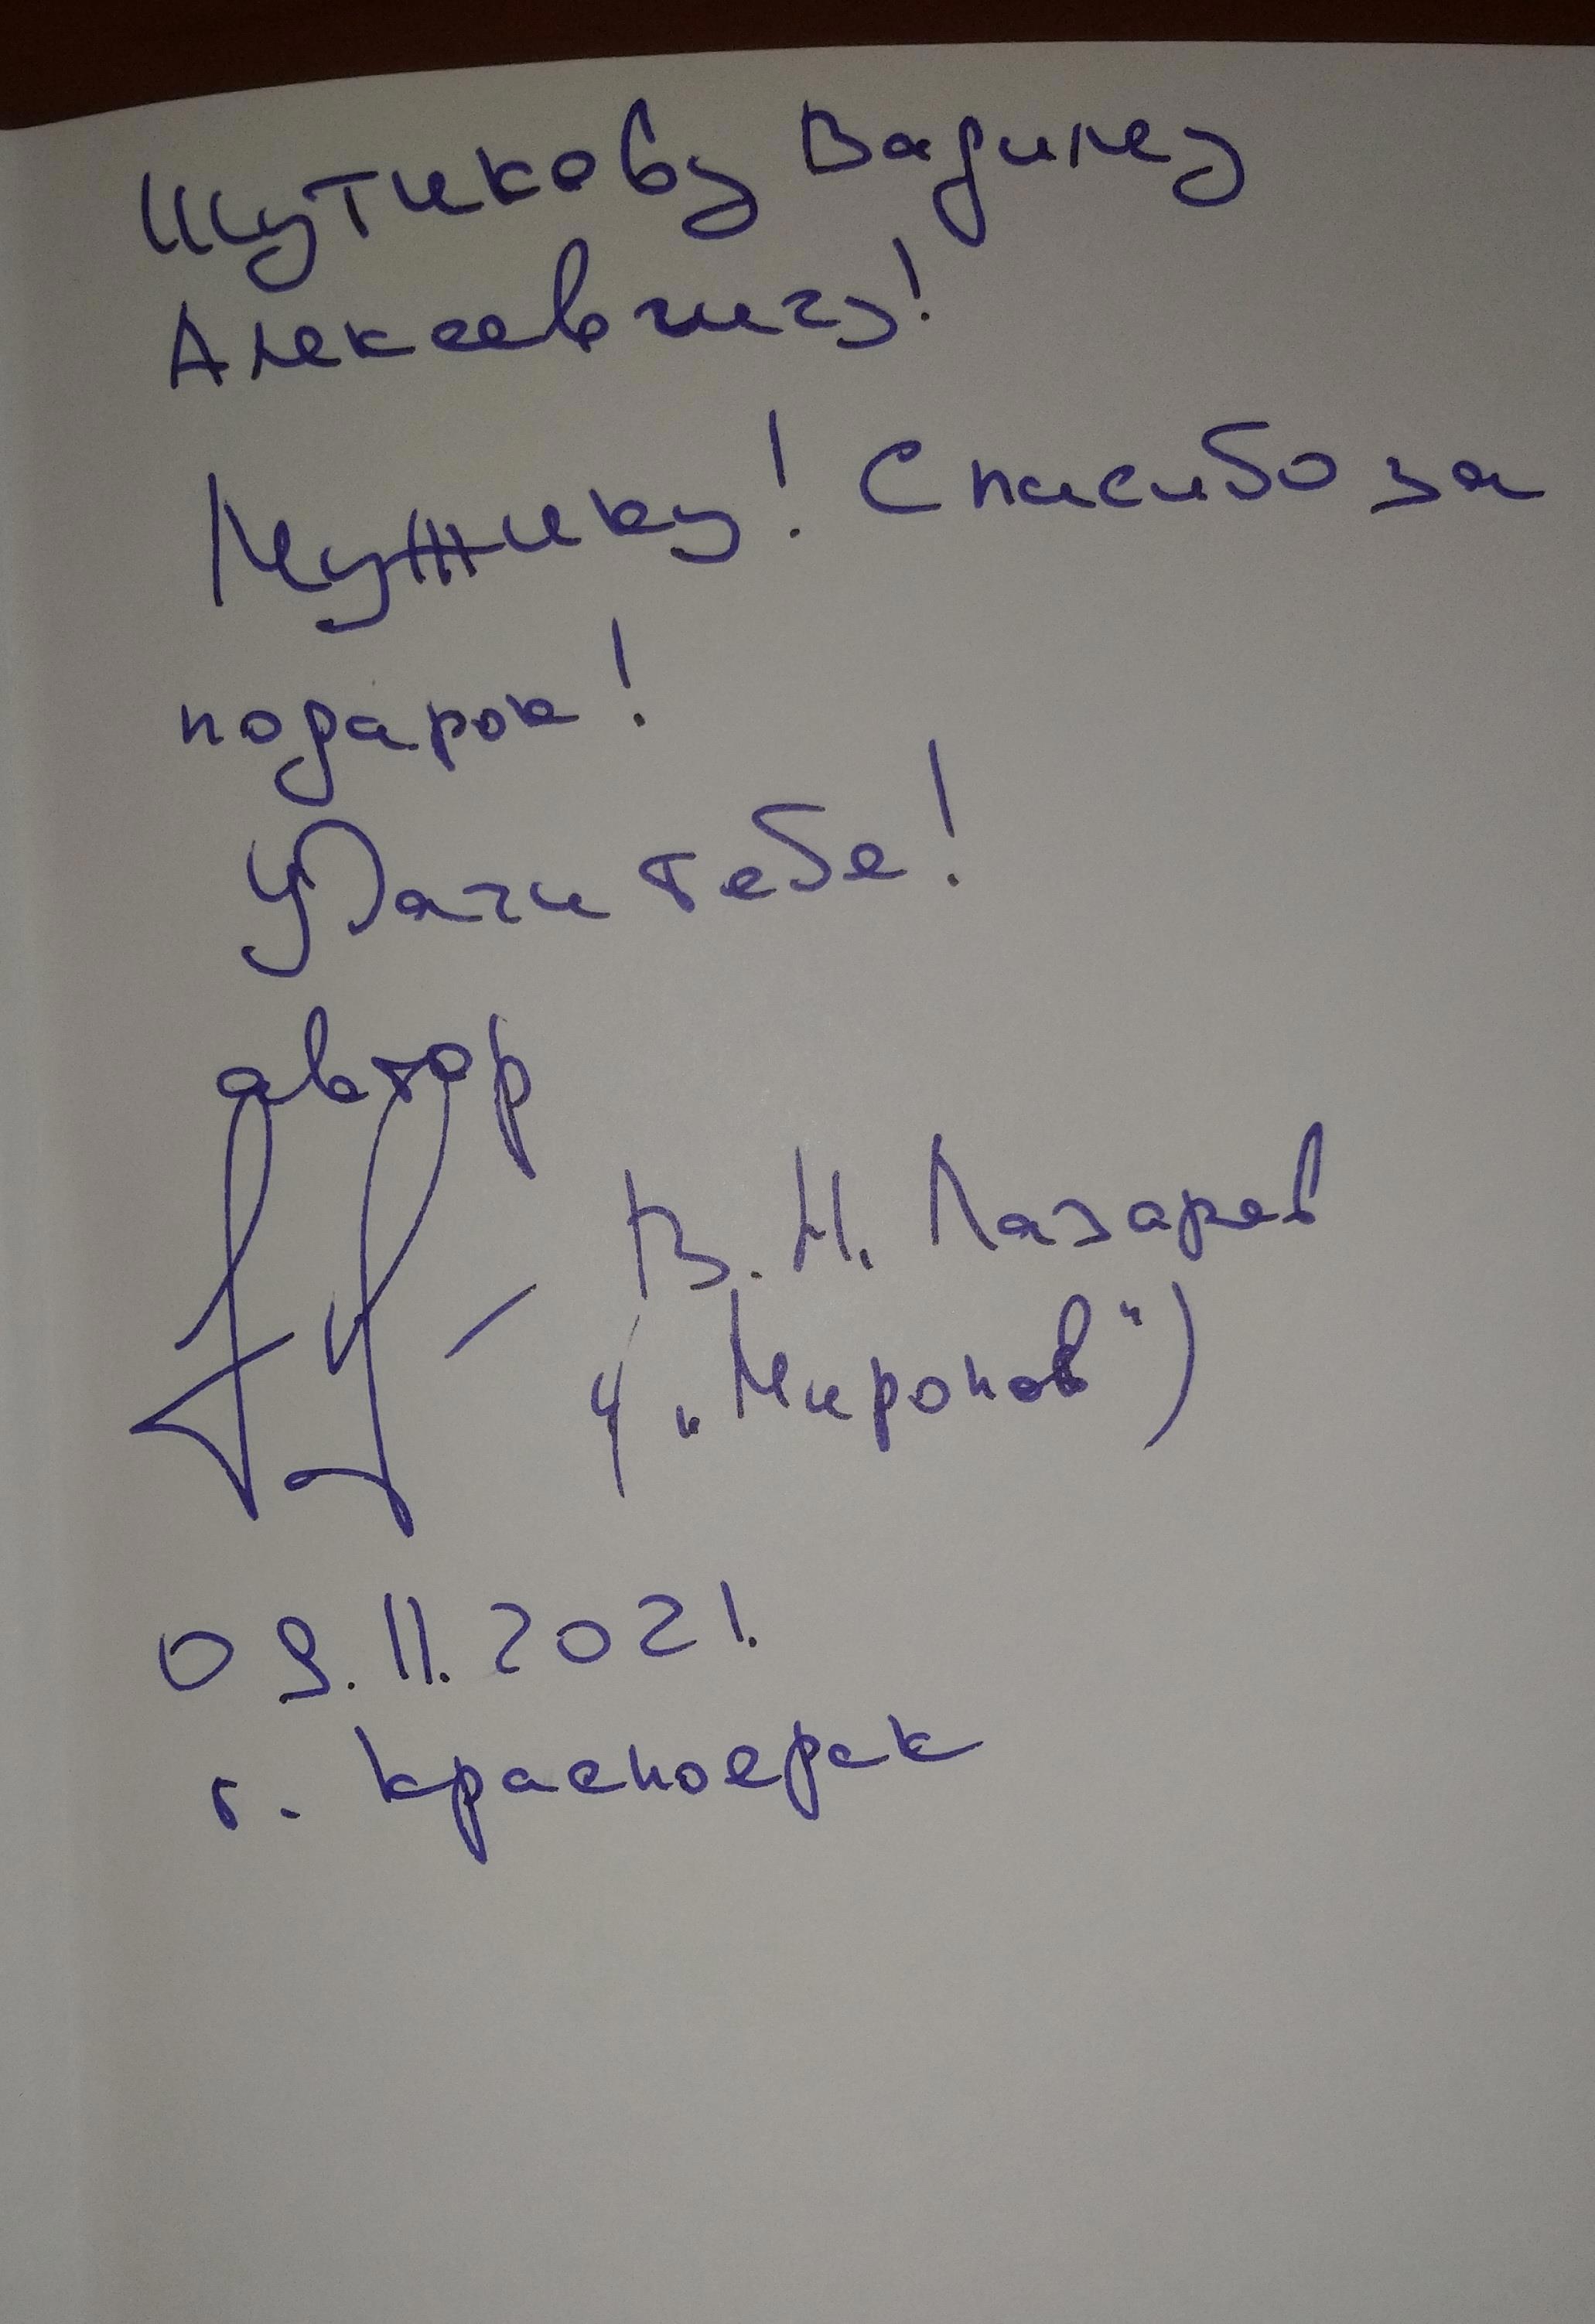 Шутикову Вадиму
Алексеевичу!
Мужику! Спасибо за
подарок!
Удачи тебе!
автор
В. Н. Лазарев
„Миронов“)
09.11.2021.
г. Красноярск